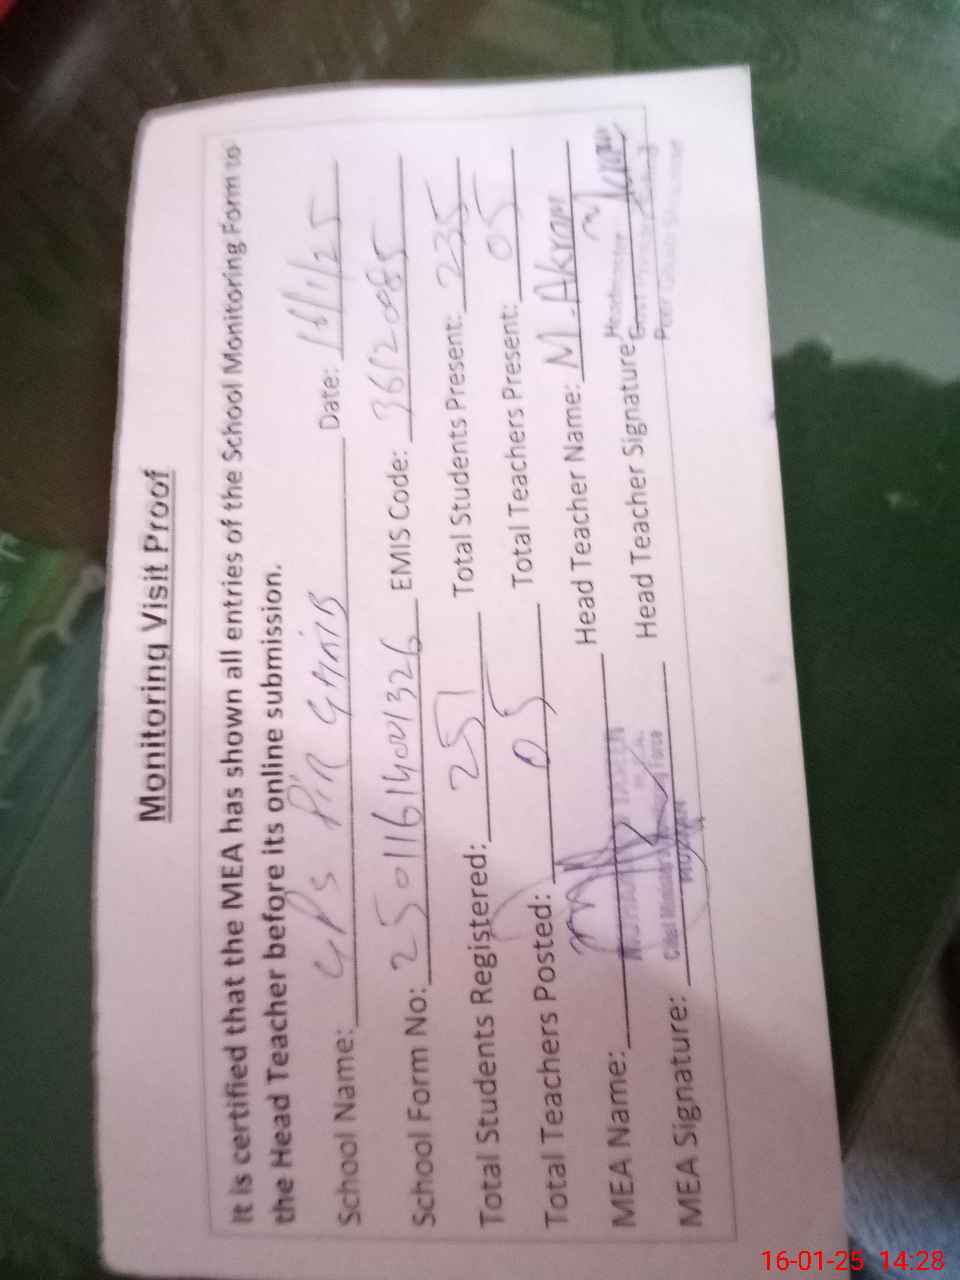 Monitoring Visit Proof
It is certified that the MEA has shown all entries of the School Monitoring Form to
the Head Teacher before its online submission.
School Name: GPS PIR GHAIB Date: 16/1/25
School Form No: 25011614001326 EMIS Code: 36120085
Total Students Registered: 251 Total Students Present: 235
Total Teachers Posted: 05 Total Teachers Present: 05
MEA Name: Head Teacher Name: M. Akram
MEA Signature: Head Teacher Signature:
Headmaster
16-01-25 14:28